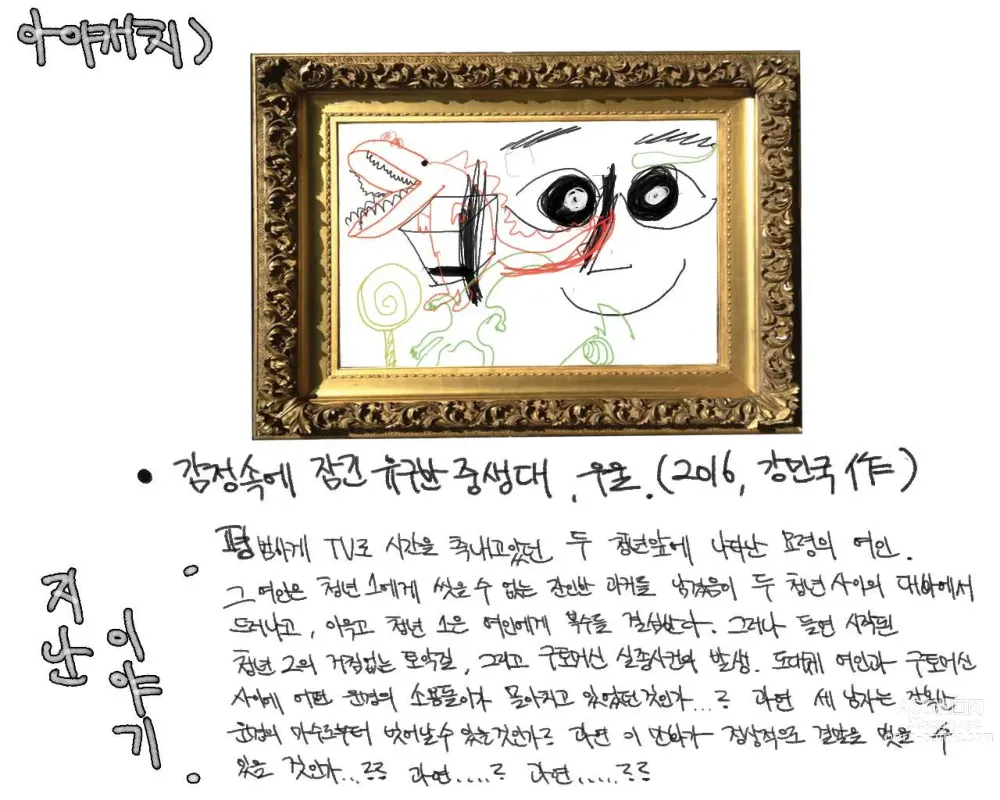 아야캐치)
• 감정속에 잠긴 유구한 중생대, 우울. (2016, 강민국 作)
지난 이야기
평범하게 TV로 시간을 축내고있던 두 청년앞에 나타난 묘령의 여인.
그 여인은 청년 1에게 씻을 수 없는 잔인한 과거를 남겼음이 두 청년 사이의 대화에서
드러나고, 이윽고 청년 1은 여인에게 복수를 결심한다. 그러나 돌연 시작된
청년 2의 거침없는 토악질, 그리고 구토머신 실종사건의 발생. 도대체 여인과 구토머신
사이에 어떤 운명의 소용돌이가 몰아치고 있었던것인가...? 과연 세 남자는
운명의 마수로부터 벗어날 수 있을것인가? 과연 이 만화가 정상적으로 결말을 맺을 수
있을 것인가...?? 과연.....? 과연.....??